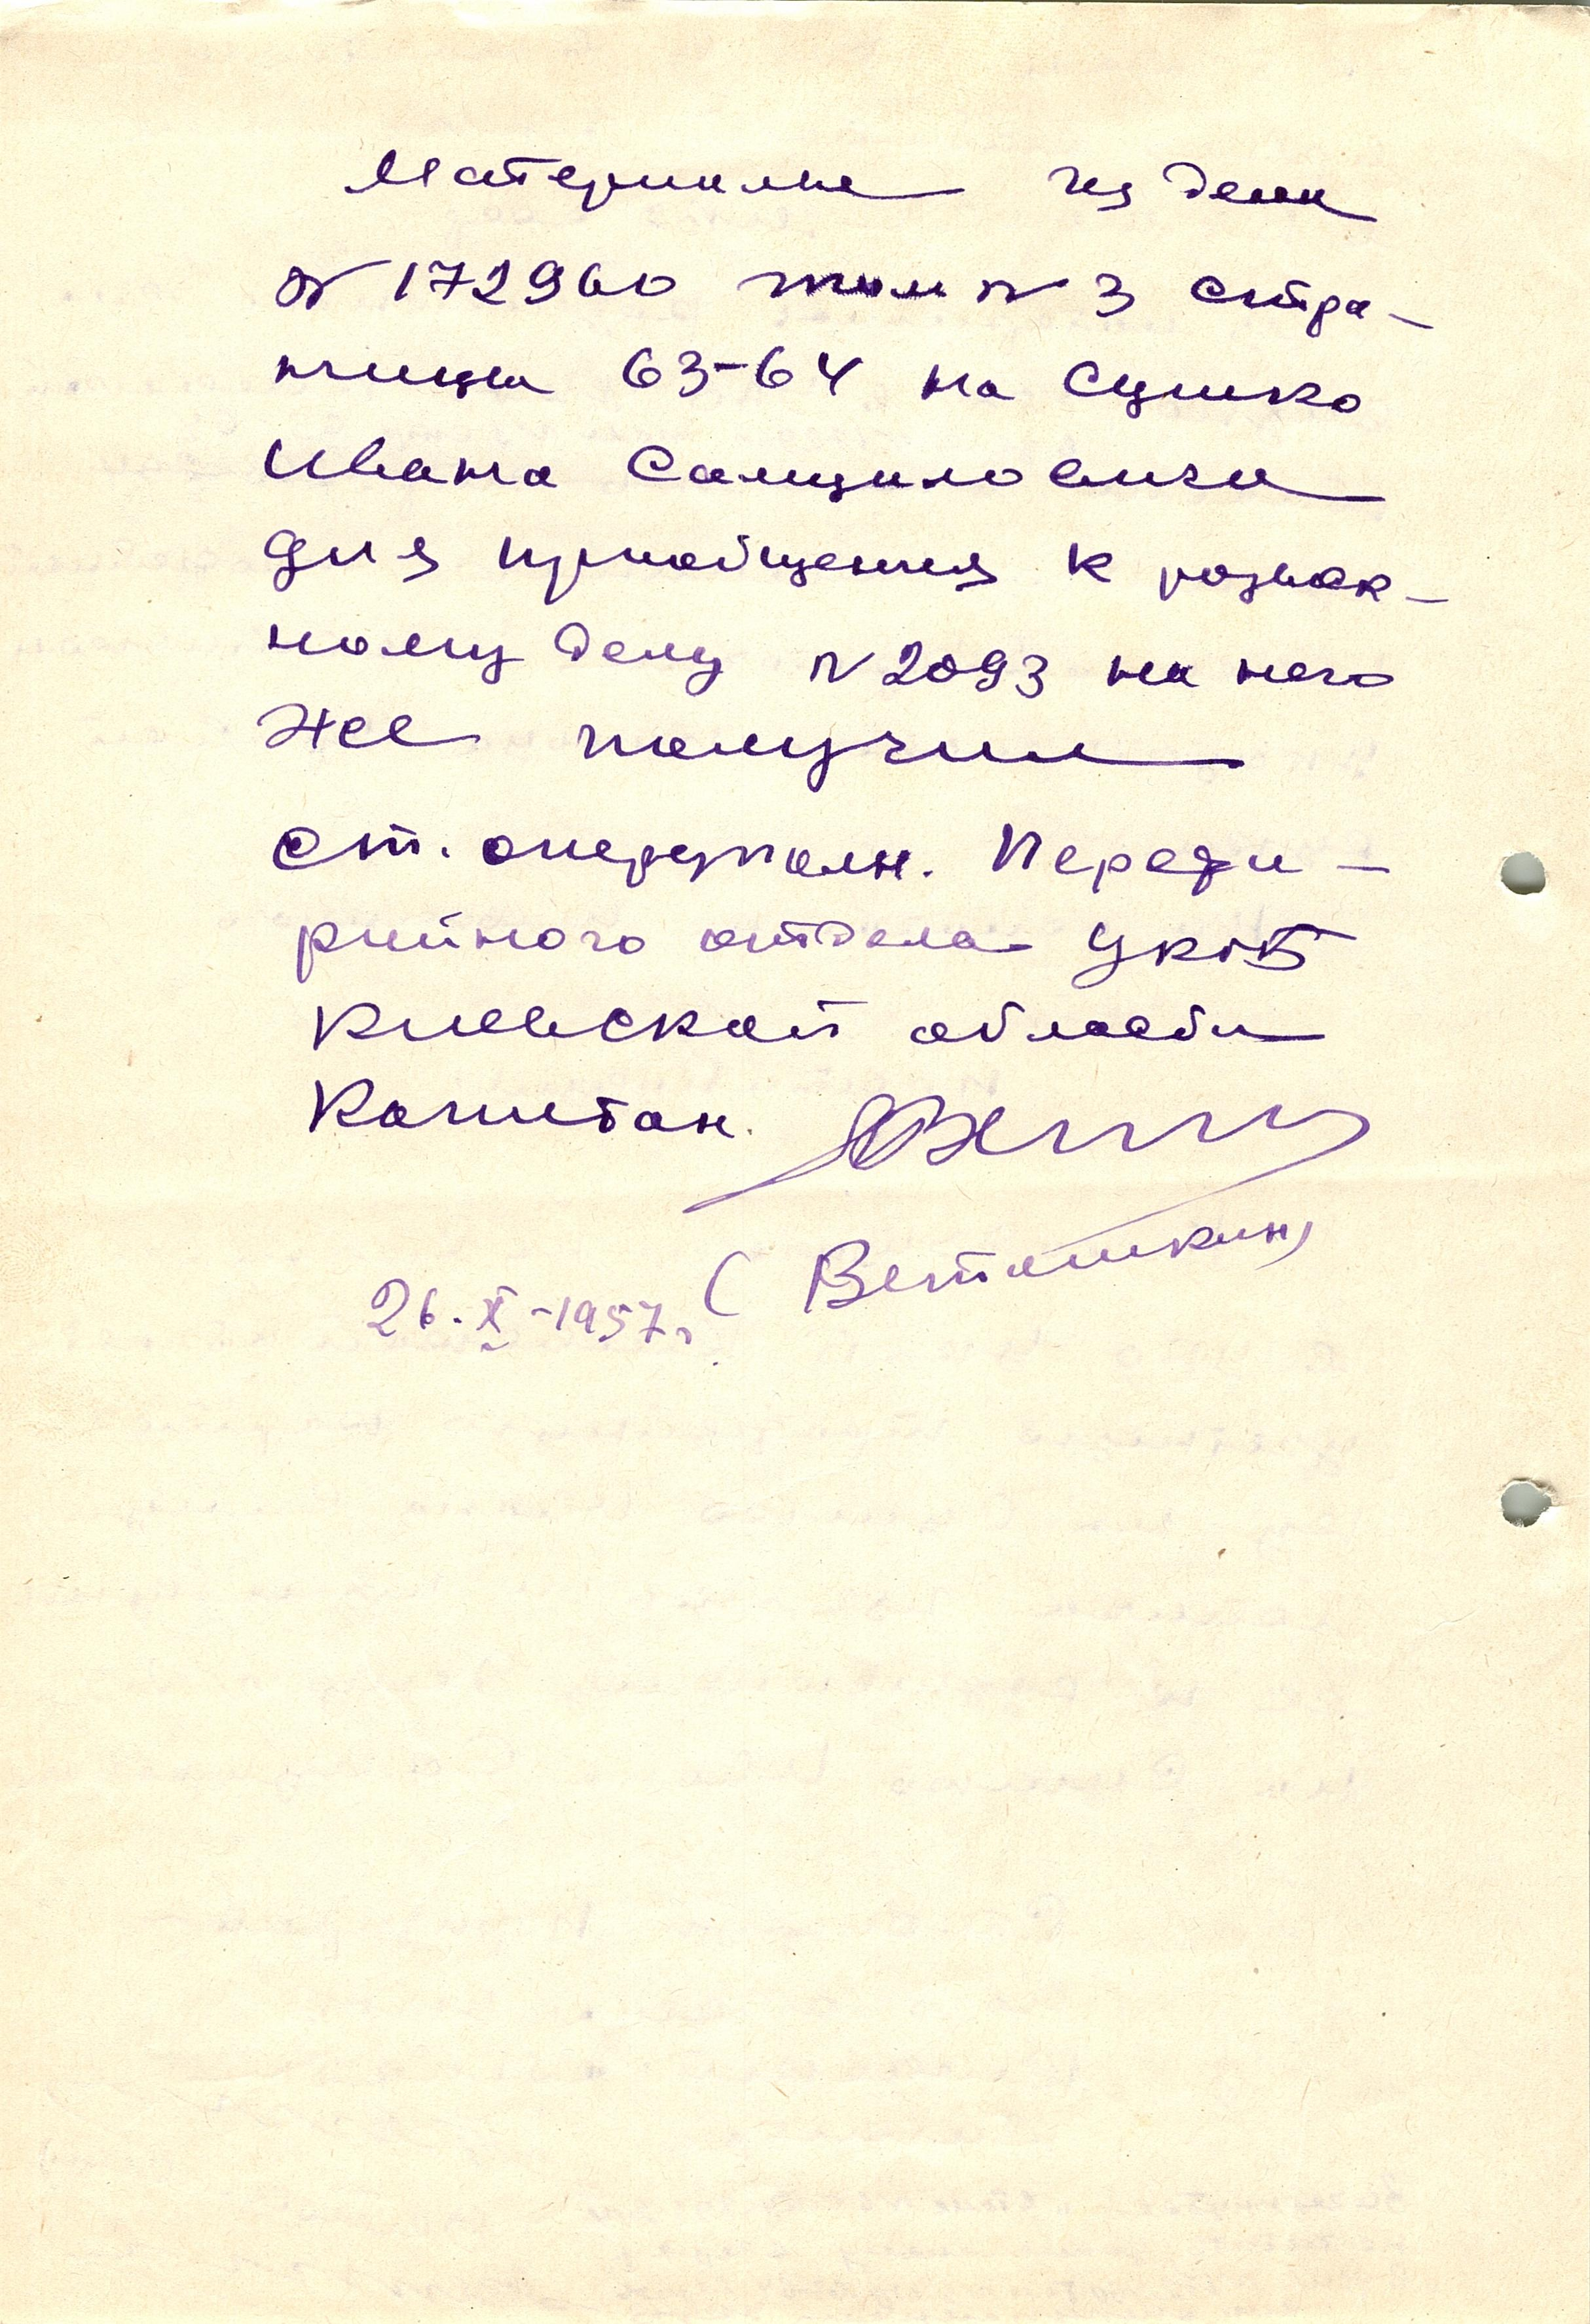 Материалы из дела
№ 172960 том № 3 стра-
ницы 63-64 на Сушко
Ивана Самуиловича
для приобщения к розыск-
ному делу № 2093 на него
же получил
ст. оперуполн. Переди-
рийного отдела УКГБ
Киевской области
Капитан.
(Веташкин)
26.X-1957г.